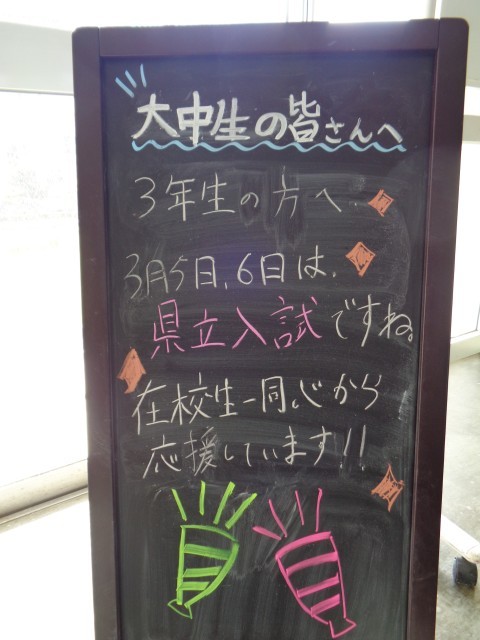 大中生の皆さんへ
3年生の方へ
3月5日、6日は、
県立入試ですね。
在校生一同心から
応援しています!!